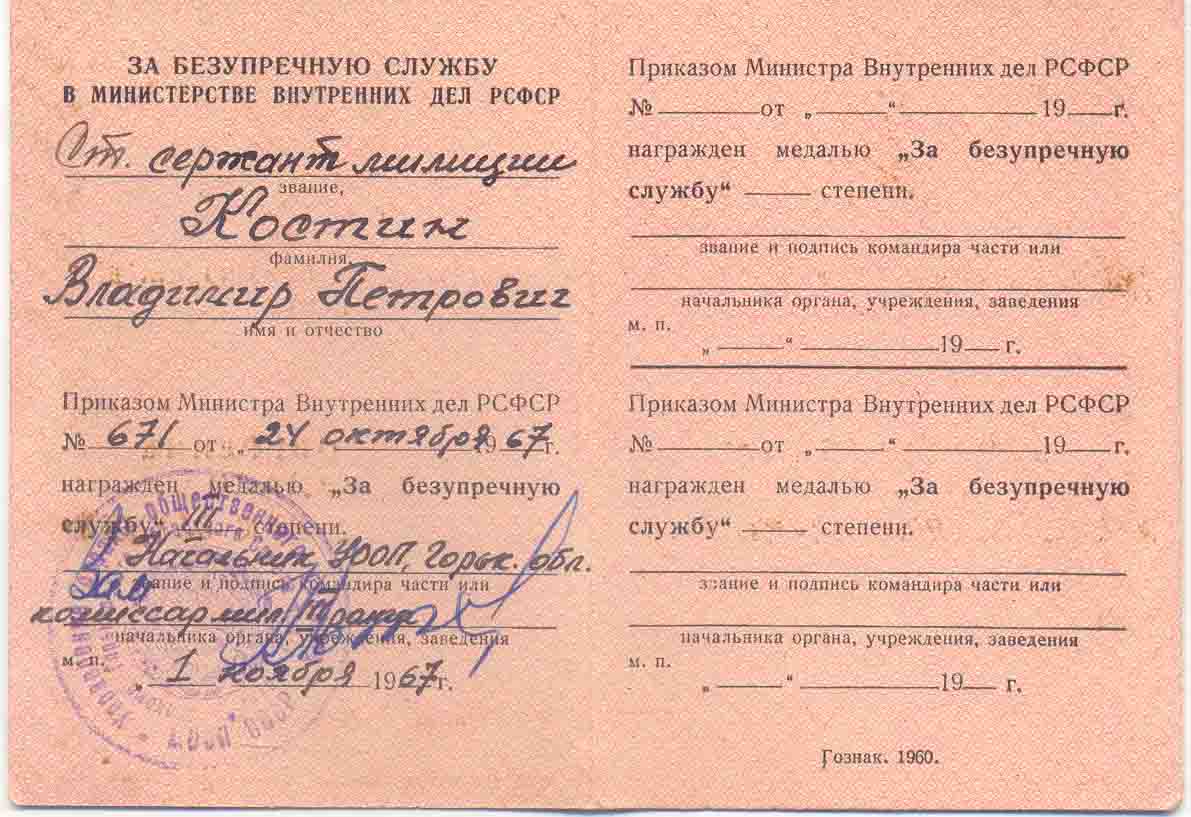 ЗА БЕЗУПРЕЧНУЮ СЛУЖБУ
В МИНИСТЕРСТВЕ ВНУТРЕННИХ ДЕЛ РСФСР
Ст. сержант милиции
звание,
Костин
фамилия,
Владимир Петрович
имя и отчество
Приказом Министра Внутренних дел РСФСР
№ 671 от „24 октября 1967 г.
награжден медалью „За безупречную
службу“ III степени.
Начальник УООП, Горьк. обл.
звание и подпись командира части или
комиссар мил. III ранга
начальника органа, учреждения, заведения
м. п.
„ 1 ноября 1967 г.
Приказом Министра Внутренних дел РСФСР
№ от „ “ 19 г.
награжден медалью „За безупречную
службу“ степени.
звание и подпись командира части или
начальника органа, учреждения, заведения
м. п.
„ “ 19 г.
Приказом Министра Внутренних дел РСФСР
№ от „ “ 19 г.
награжден медалью „За безупречную
службу“ степени.
звание и подпись командира части или
начальника органа, учреждения, заведения
м. п.
„ “ 19 г.
Гознак. 1960.